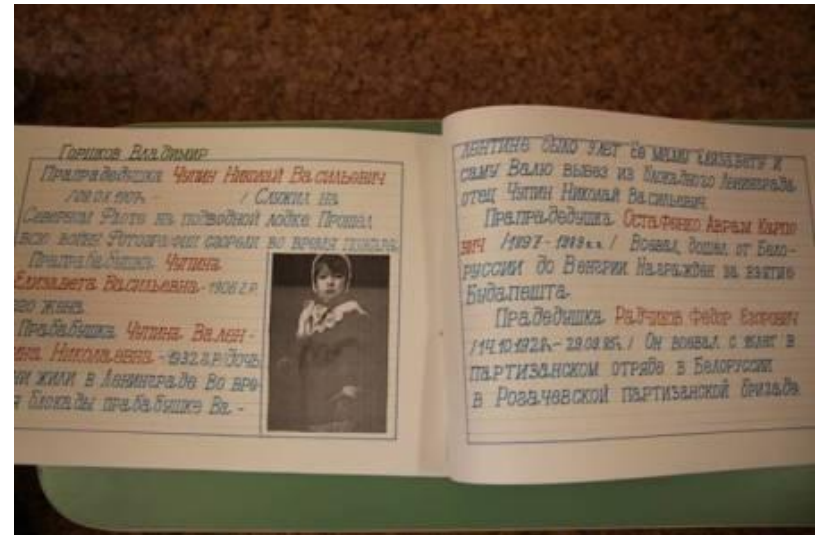 Горшков Владимир
Прапрадедушка Чупин Николай Васильевич
/ Служил на
Северном Флоте на подводной лодке. Прошел
всю войну. Фотографии сгорели во время пожара.
Прапрабабушка Чупина
Елизавета Васильевна - 1906 г.р.
его жена.
Прабабушка Чупина Вален-
тина Николаевна - 1932 г.р. дочь
жили в Ленинграде. Во вре-
я блокады прабабушке Ва-
лентине было 9 лет. Ее маму Елизавету и
саму Валю вывез из блокадного Ленинграда
отец Чупин Николай Васильевич.
Прапрадедушка Остафенко Аврам Карпо
вич / Воевал, дошел от Бело-
руссии до Венгрии. Награжден за взятие
Будапешта.
Прадедушка Радчиков Федор Егорович
/14.10.1928г.- / Он воевал с 16 лет в
партизанском отряде в Белоруссии
в Рогачевской партизанской бригаде.